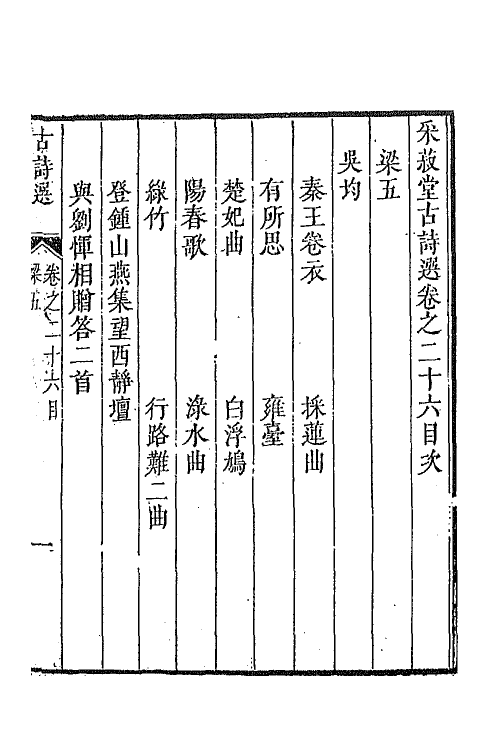 采菽堂古詩選卷之二十六目次
梁五
吳均
秦王卷衣　採蓮曲
有所思　雍臺
楚妃曲　白浮鳩
陽春歌　淥水曲
綠竹　行路難二曲
登鍾山燕集望西靜壇
與劉惲相贈答二首
古詩選　卷之二十六目　梁五　一